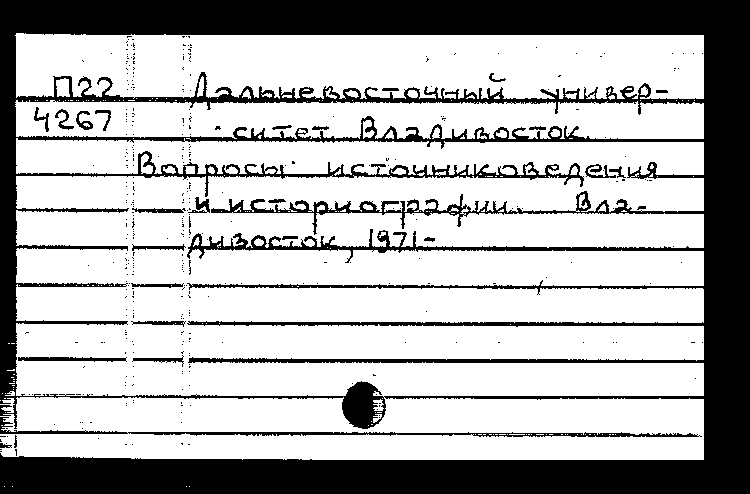 П22 Дальневосточный универ-
4267 ситет. Владивосток.
Вопросы источниковедения
и историографии. Вла-
дивосток, 1971-